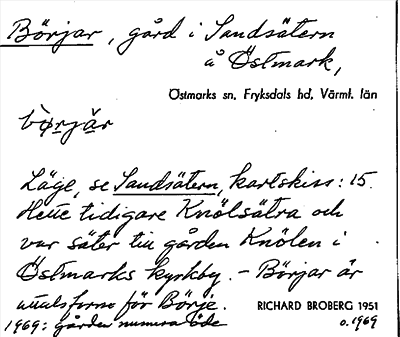 Börjar, gård i Sandsätern
å Östmark,
Östmarks sn, Fryksdals hd, Värml. län
bör̀jàr
Läge, se Sandsätern, kartskiss: 15.
Hette tidigare Knölsätra och
var säter till gården Knölen i
Östmarks kyrkby. – Börjar är
uttalsform för Börje.
RICHARD BROBERG 1951
1969: Gården numera öde
o. 1969